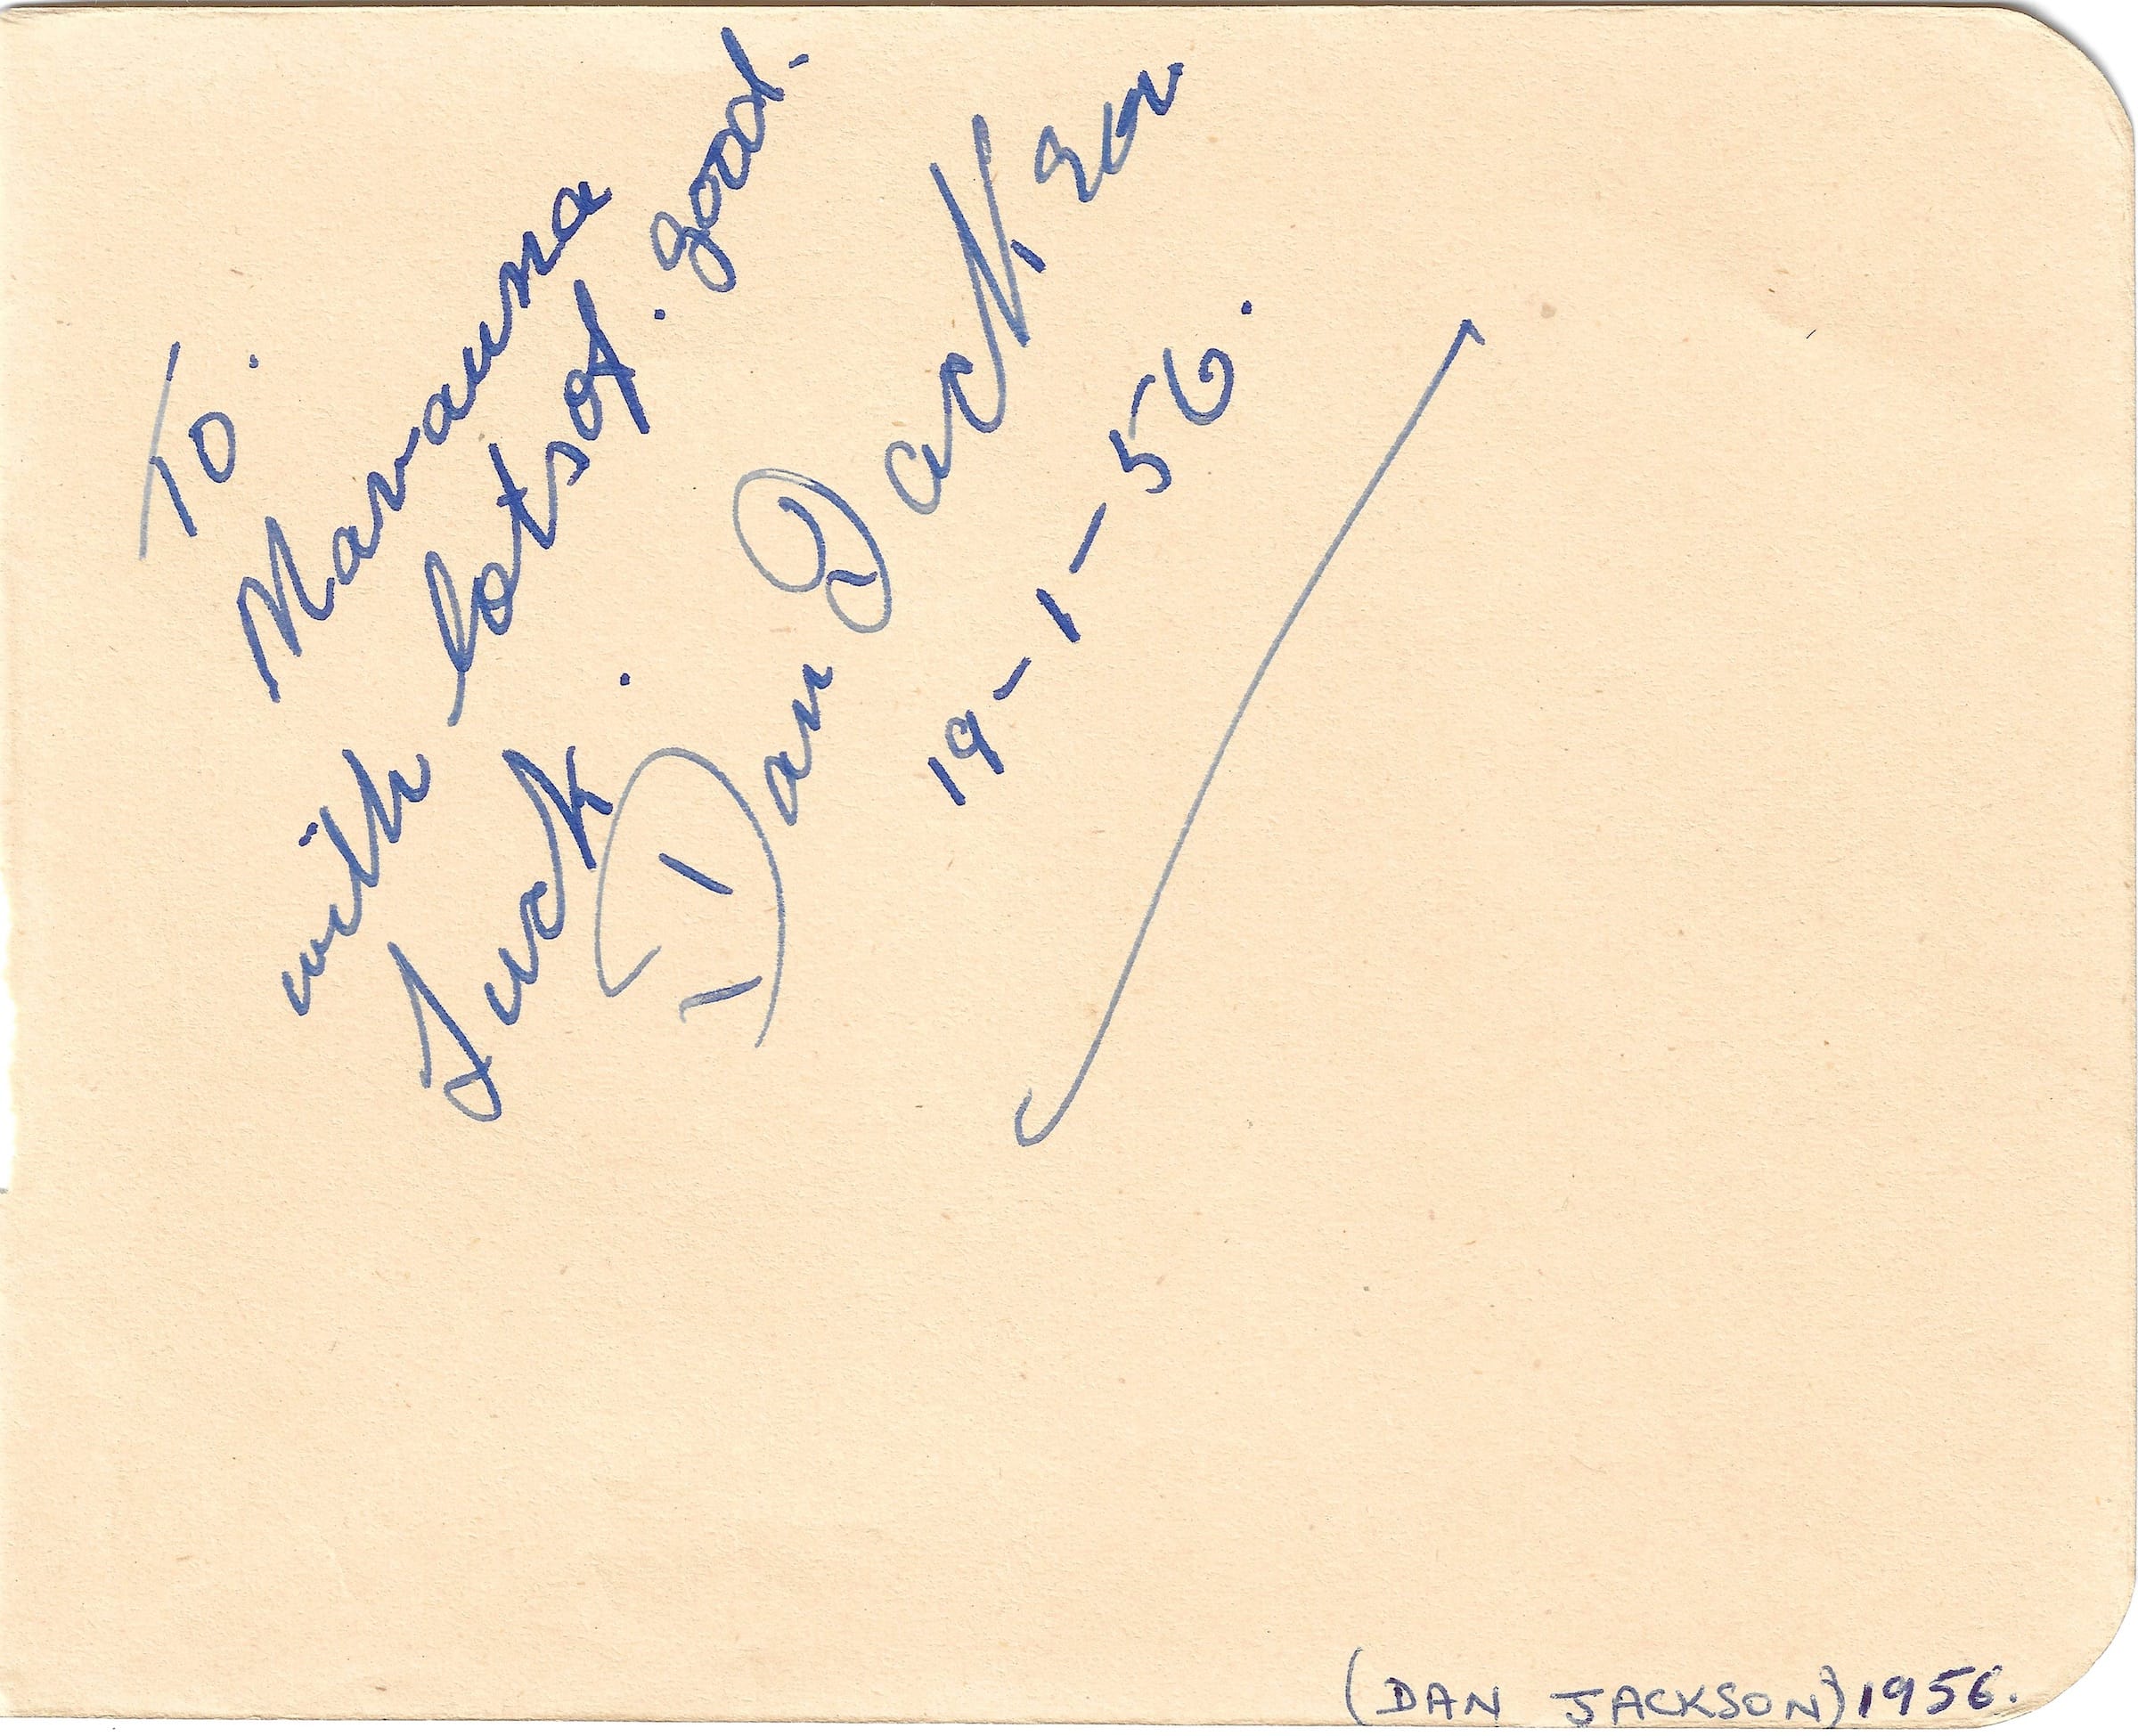 To.
Maraunna
with lots of. good.
Luck.
Dan Jackson
19-1-56.
(DAN JACKSON) 1956.